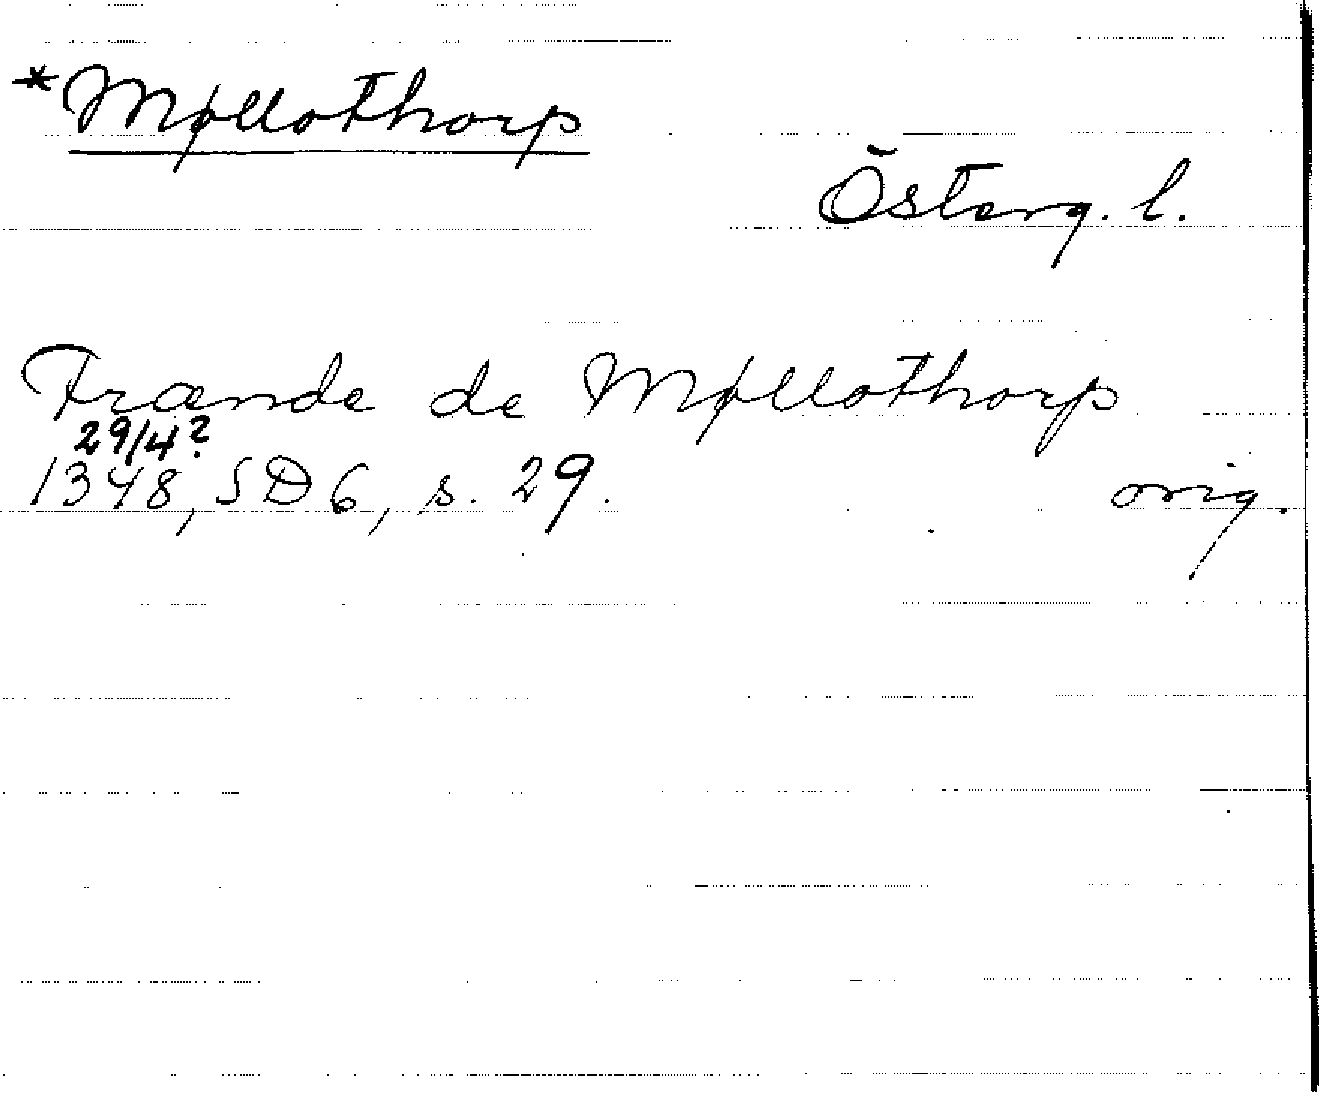 *Møllothorp
Österg. l.
Frænde de Møllothorp
29/4?
1348, SD 6, s. 29. orig.